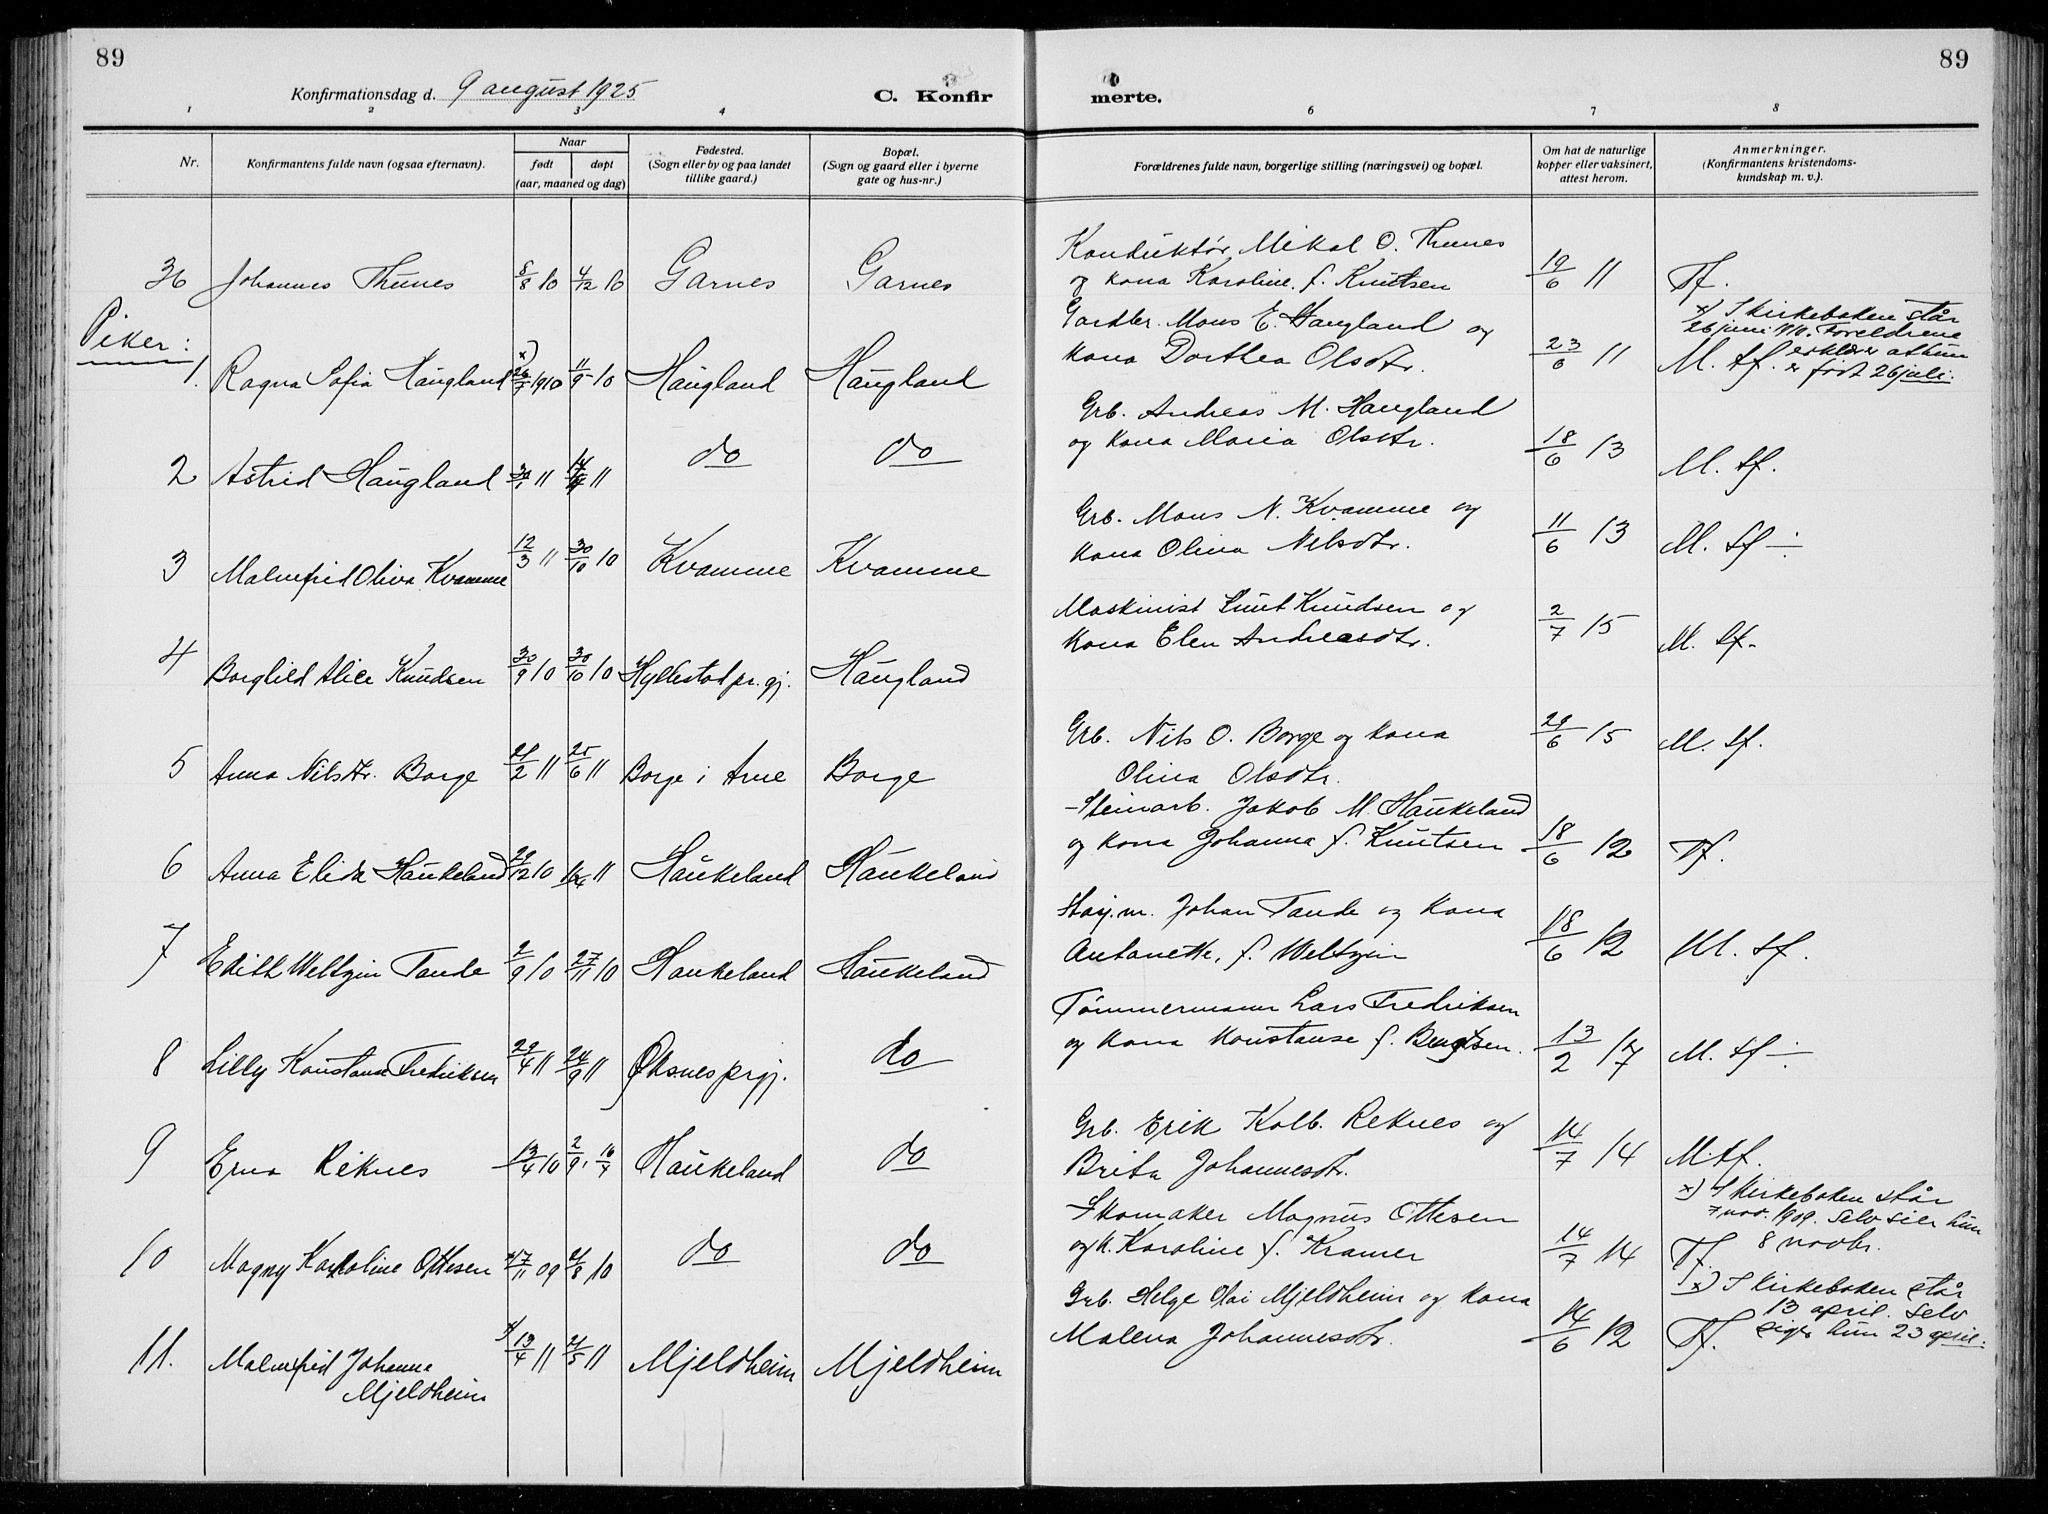 89
89
Konfirmationsdag d. 9 august 1925
C. Konfir
merte.
1 2 3 4 6 7 8
Nr.
Konfirmantens fulde navn (ogsaa efternavn).
Naar
født døpt
(aar, maaned og dag)
Fødested.
(Sogn eller by og paa landet
tillike gaard.)
Bopæl.
(Sogn og gaard eller i byerne
gate og hus-nr.)
Forældrenes fulde navn, borgerlige stilling (næringsvei) og bopæl.
Om hat de naturlige
kopper eller vaksinert,
attest herom.
Anmerkninger.
(Konfirmantens kristendoms-
kundskap m. v.).
36 Johannes Thunes 8/8 10 4/12 10 Garnes Garnes
Konduktør Mikal O. Thunes
og kona Karoline f. Knutsen 19/6 11 Tf.
Piker:
1. Ragna Sofia Haugland x) 26/7 1910 11/9 10 Haugland Haugland
Gardbr. Mons E. Haugland og
kona Dorthea Olsdtr. 23/6 11 M. tf.
x) I kirkeboken står
26 juni 1910. Foreldrene
erklærer at hun
er født 26 juli.
2 Astrid Haugland 30/1 11 11 do do
Grb. Andreas M. Haugland
og kona Maria Olsdtr. 18/6 13 M. tf.
3 Malmfrid Oliva Kvamme 12/3 11 30/10 10 Kvamme Kvamme
Grb. Mons N. Kvamme og
kona Olina Nilsdtr. 11/6 13 M. tf.
4 Borghild Alice Knudsen 30/9 10 30/10 10 Hyllestad pr.gj. Haugland
Maskinist Knudsen og
kona Elen Andreasdtr. 2/7 15 M. tf.
5 Anna Nilsdtr. Borge 21/2 11 25/6 11 Borge i Arne Borge
Grb. Nils O. Borge og kona
Olina Olsdtr. 29/6 15 M. tf.
6 Anna Elida Haukeland 29/12 10 16/4 11 Haukeland Haukeland
Steinarb. Jakob M. Haukeland
og kona Johanna f. Knutsen 18/6 12 Tf.
7 Edith Weltzin Tande 2/9 10 27/11 10 Haukeland Haukeland
Johan Tande og kona
Antonette, f. Weltzin 18/6 12 M. tf.
8 Lilly Konstanse Fredriksen 29/4 11 24/9 11 Øksnes prgj. do
Tømmermann Lars Fredriksen
og kona Konstanse f. Bengtsen. 13/2 17 M. tf.
9 Erna Reknes 13/4 10 2/9, 16/7 Haukeland do
Grb. Erik Kolb. Reknes og
Brita Johannesdtr. 14/7 14 M. tf.
10 Magny Karoline Ottesen x) 17/11 09 21/8 10 do do
Skomaker Magnus Ottesen
og k. Karoline f. Kramer 14/7 14 Tf.
x) I kirkeboken står
7 nov. 1909. Selv sier hun
8 novbr.
11. Malmfrid Johanne
Mjeldheim x) 13/4 11 21/5 11 Mjeldheim Mjeldheim
Grb. Helge Mjeldheim og kona
Malena Johannesdtr. 14/6 12 Tf.
x) I kirkeboken står
13 april. Selv
siger hun 23 april.